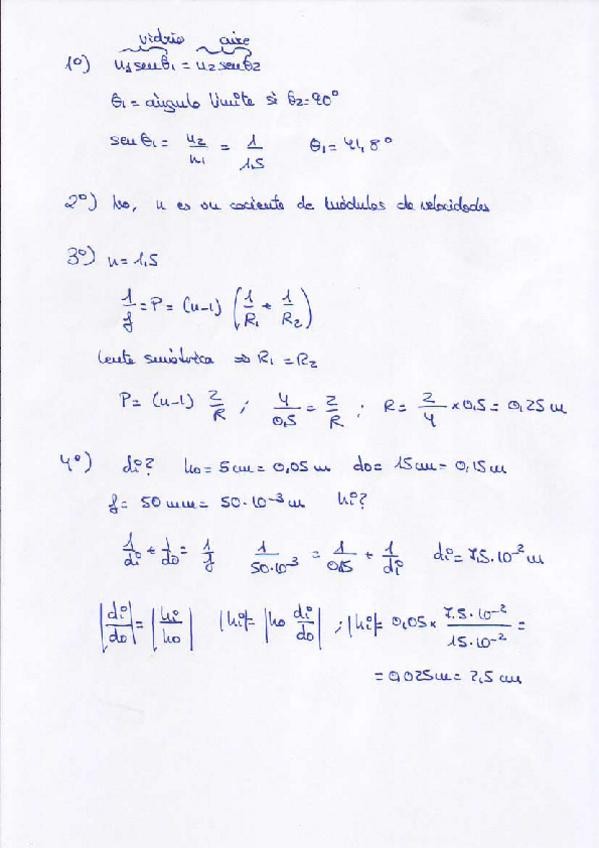 vidrio aire
1º) n₁ senθ₁ = n₂ senθ₂
θ₁ = ángulo límite si θ₂ = 90°
senθ₁ = n₂/n₁ = 1/1,5 θ₁ = 41,8°
2º) No, n es un cociente de módulos de velocidades
3º) n = 1,5
1/f = P = (n-1) (1/R₁ + 1/R₂)
Lente simétrica ⇒ R₁ = R₂
P = (n-1) 2/R ; 4/0,5 = 2/R ; R = 2/4 × 0,5 = 0,25 m
4º) di? ho = 5 cm = 0,05 m do = 15 cm = 0,15 m
f = 50 mm = 50·10⁻³ m hi?
1/di + 1/do = 1/f 1/50·10⁻³ = 1/0,15 + 1/di di = 7,5·10⁻² m
|di/do| = |hi/ho| |hi| = |ho di/do| ; |hi| = 0,05 × 7,5·10⁻²/15·10⁻² =
= 0,025 m = 2,5 cm